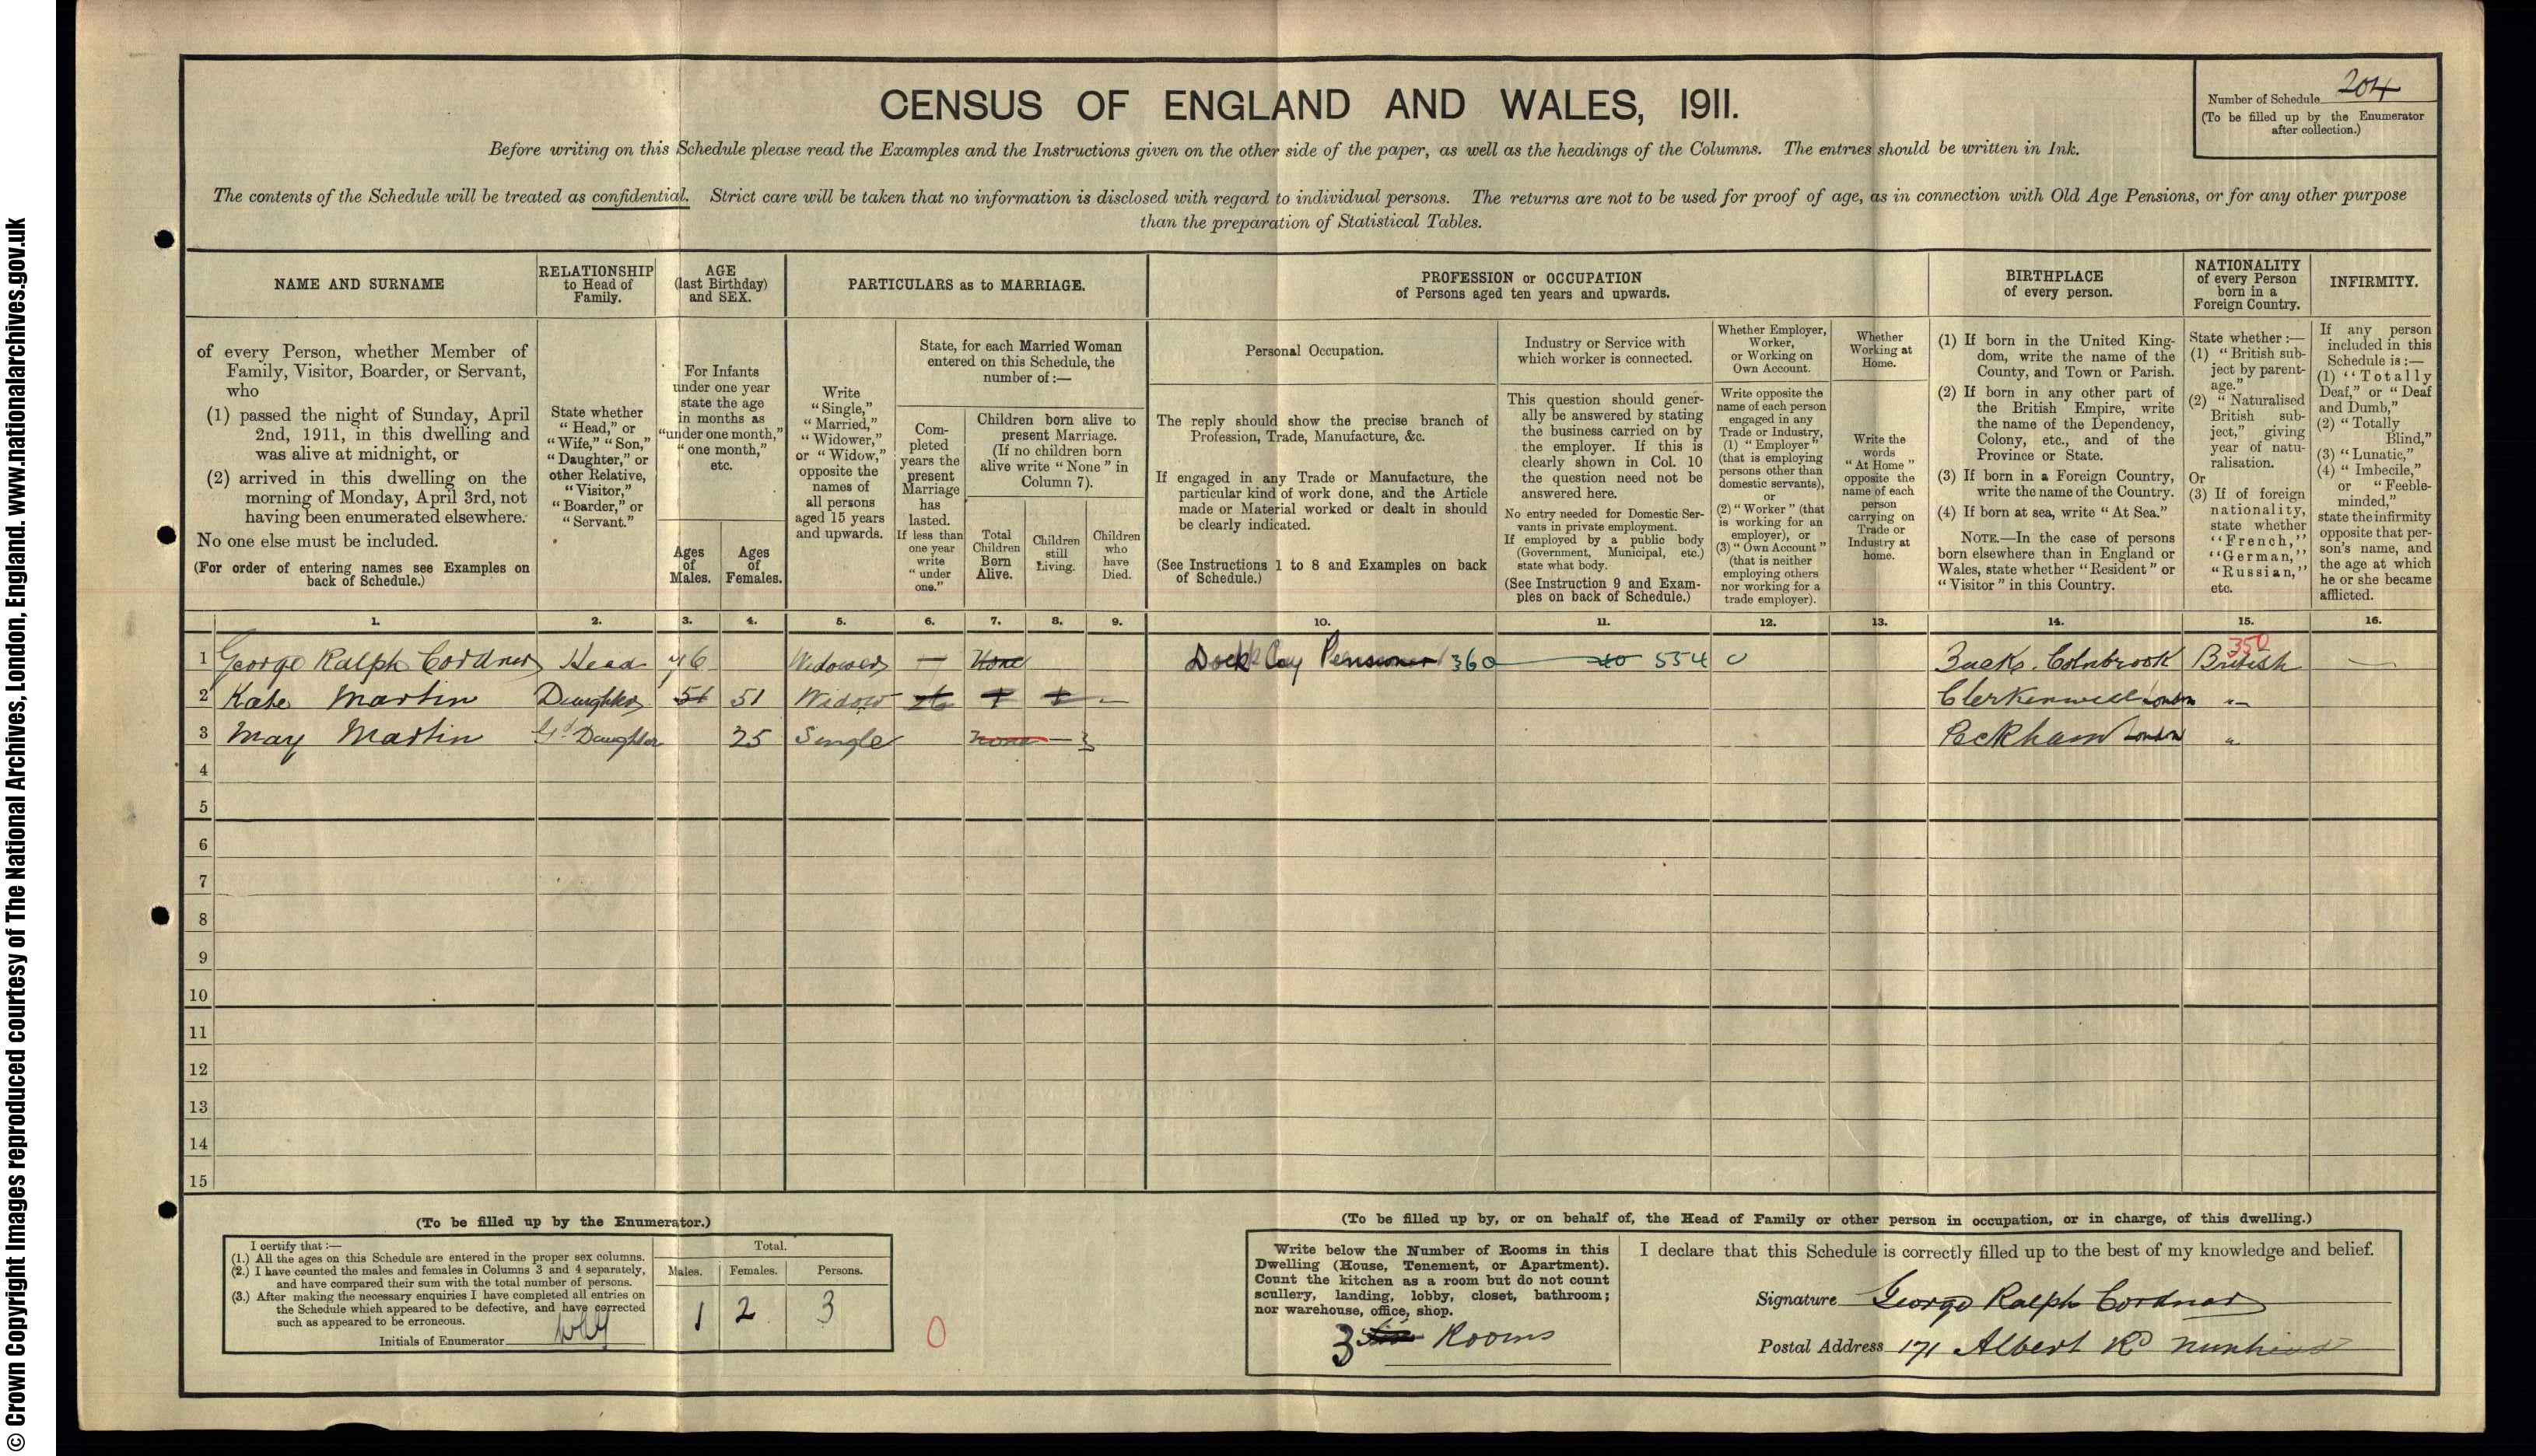 CENSUS OF ENGLAND AND WALES, 1911.
Number of Schedule 204
(To be filled up by the Enumerator
after collection.)
Before writing on this Schedule please read the Examples and the Instructions given on the other side of the paper, as well as the headings of the Columns. The entries should be written in Ink.
The contents of the Schedule will be treated as confidential. Strict care will be taken that no information is disclosed with regard to individual persons. The returns are not to be used for proof of age, as in connection with Old Age Pensions, or for any other purpose
than the preparation of Statistical Tables.
NAME AND SURNAME
of every Person, whether Member of
Family, Visitor, Boarder, or Servant,
who
(1) passed the night of Sunday, April
2nd, 1911, in this dwelling and
was alive at midnight, or
(2) arrived in this dwelling on the
morning of Monday, April 3rd, not
having been enumerated elsewhere.
No one else must be included.
(For order of entering names see Examples on
back of Schedule.)
RELATIONSHIP
to Head of
Family.
State whether
"Head," or
"Wife," "Son,"
"Daughter," or
other Relative,
"Visitor,"
"Boarder," or
"Servant."
AGE
(last Birthday)
and SEX.
For Infants
under one year
state the age
in months as
"under one month,"
"one month,"
etc.
Ages
of
Males.
Ages
of
Females.
PARTICULARS as to MARRIAGE.
Write
"Single,"
"Married,"
"Widower,"
or "Widow,"
opposite the
names of
all persons
aged 15 years
and upwards.
State, for each Married Woman
entered on this Schedule, the
number of :—
Com-
pleted
years the
present
Marriage
has
lasted.
If less than
one year
write
"under
one."
Children born alive to
present Marriage.
(If no children born
alive write "None" in
Column 7).
Total
Children
Born
Alive.
Children
still
Living.
Children
who
have
Died.
PROFESSION or OCCUPATION
of Persons aged ten years and upwards.
Personal Occupation.
The reply should show the precise branch of
Profession, Trade, Manufacture, &c.
If engaged in any Trade or Manufacture, the
particular kind of work done, and the Article
made or Material worked or dealt in should
be clearly indicated.
(See Instructions 1 to 8 and Examples on back
of Schedule.)
Industry or Service with
which worker is connected.
This question should gener-
ally be answered by stating
the business carried on by
the employer. If this is
clearly shown in Col. 10
the question need not be
answered here.
No entry needed for Domestic Ser-
vants in private employment.
If employed by a public body
(Government, Municipal, etc.)
state what body.
(See Instruction 9 and Exam-
ples on back of Schedule.)
Whether Employer,
Worker,
or Working on
Own Account.
Write opposite the
name of each person
engaged in any
Trade or Industry,
(1) "Employer"
(that is employing
persons other than
domestic servants),
or
(2) "Worker" (that
is working for an
employer), or
(3) "Own Account"
(that is neither
employing others
nor working for a
trade employer).
Whether
Working at
Home.
Write the
words
"At Home"
opposite the
name of each
person
carrying on
Trade or
Industry at
home.
BIRTHPLACE
of every person.
(1) If born in the United King-
dom, write the name of the
County, and Town or Parish.
(2) If born in any other part of
the British Empire, write
the name of the Dependency,
Colony, etc., and of the
Province or State.
(3) If born in a Foreign Country,
write the name of the Country.
(4) If born at sea, write "At Sea."
NOTE.—In the case of persons
born elsewhere than in England or
Wales, state whether "Resident" or
"Visitor" in this Country.
NATIONALITY
of every Person
born in a
Foreign Country.
State whether :—
(1) "British sub-
ject by parent-
age."
(2) "Naturalised
British sub-
ject," giving
year of natu-
ralisation.
Or
(3) If of foreign
nationality,
state whether
"French,"
"German,"
"Russian,"
etc.
INFIRMITY.
If any person
included in this
Schedule is :—
(1) "Totally
Deaf," or "Deaf
and Dumb,"
(2) "Totally
Blind,"
(3) "Lunatic,"
(4) "Imbecile,"
or "Feeble-
minded,"
state the infirmity
opposite that per-
son's name, and
the age at which
he or she became
afflicted.
1. 2. 3. 4. 5. 6. 7. 8. 9. 10. 11. 12. 13. 14. 15. 16.
350
1 George Ralph Cordner Head 76 Widower — None Dock Coy Pensioner 360 554 0 Bucks. Colnbrook British —
2 Kate Martin Daughter 51 51 Widow — Clerkenwell London "
3 May Martin Gd Daughter 25 Single None — Peckham London "
4
5
6
7
8
9
10
11
12
13
14
15
(To be filled up by the Enumerator.)
I certify that :—
(1.) All the ages on this Schedule are entered in the proper sex columns.
(2.) I have counted the males and females in Columns 3 and 4 separately,
and have compared their sum with the total number of persons.
(3.) After making the necessary enquiries I have completed all entries on
the Schedule which appeared to be defective, and have corrected
such as appeared to be erroneous.
Initials of Enumerator
Total.
Males. Females. Persons.
1 2 3
0
(To be filled up by, or on behalf of, the Head of Family or other person in occupation, or in charge, of this dwelling.)
Write below the Number of Rooms in this
Dwelling (House, Tenement, or Apartment).
Count the kitchen as a room but do not count
scullery, landing, lobby, closet, bathroom;
nor warehouse, office, shop.
3 Rooms
I declare that this Schedule is correctly filled up to the best of my knowledge and belief.
Signature George Ralph Cordner
Postal Address 171 Albert Rd Nunhead
© Crown Copyright Images reproduced courtesy of The National Archives, London, England. www.nationalarchives.gov.uk